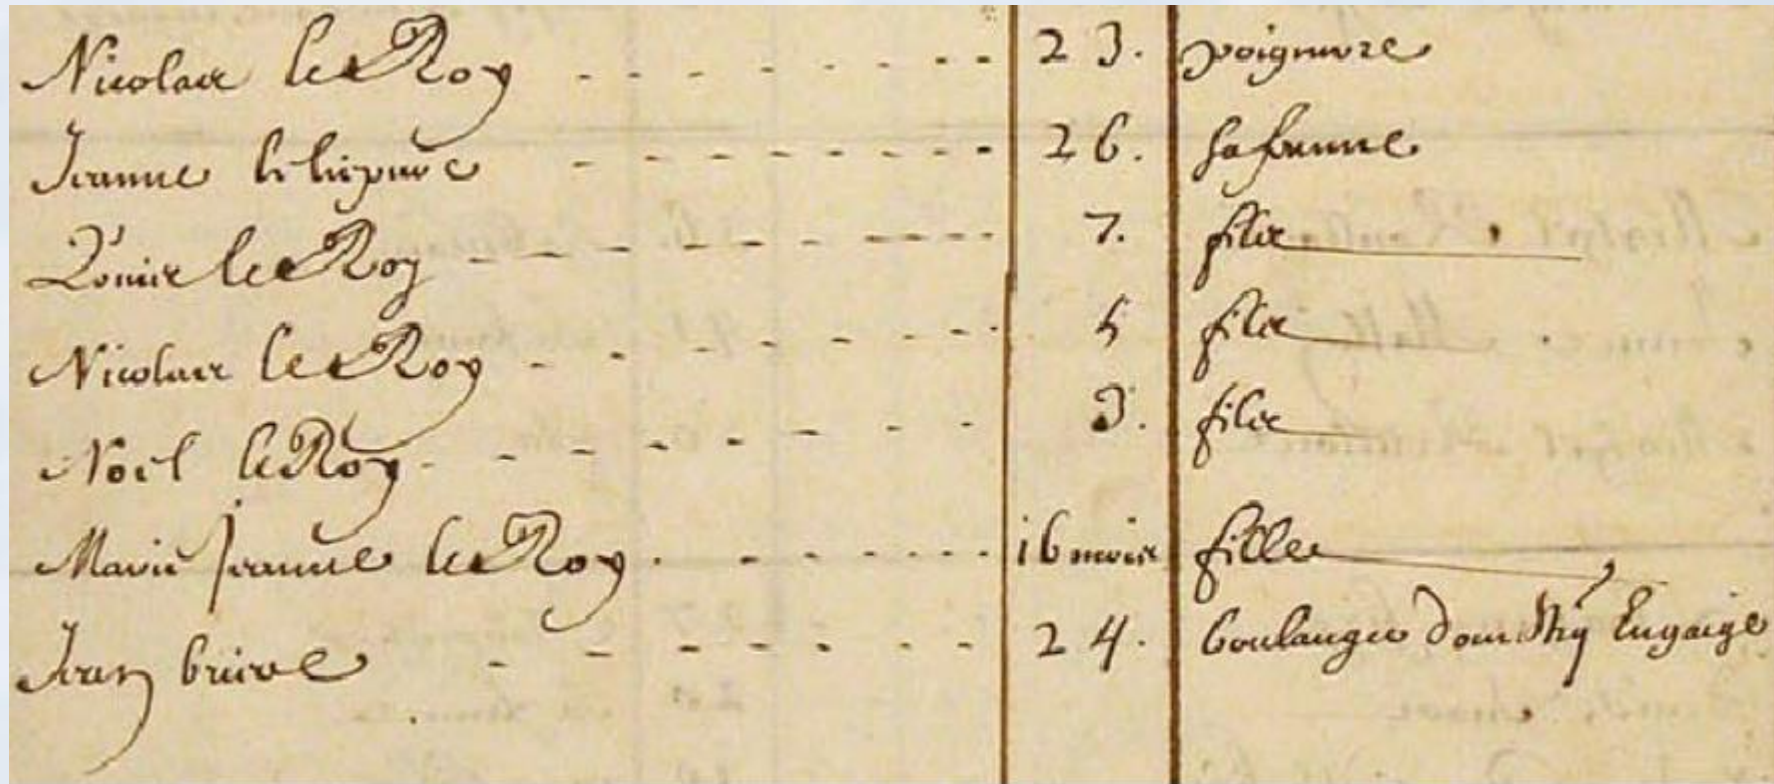 Nicolas le Roy - - - - - - - - 23. 
Jeanne leliepvre - - - - - - - - 26. sa femme
Louis le Roy - - - - - - - - 7. filz
Nicolas le Roy - - - - - - - 5 filz
Noel le Roy - - - - - - - - 3. filz
Marie Jeanne le Roy - - - - - - 16 mois fille
Jean - - - - - - - - 24. boulanger domestiq Engaigé